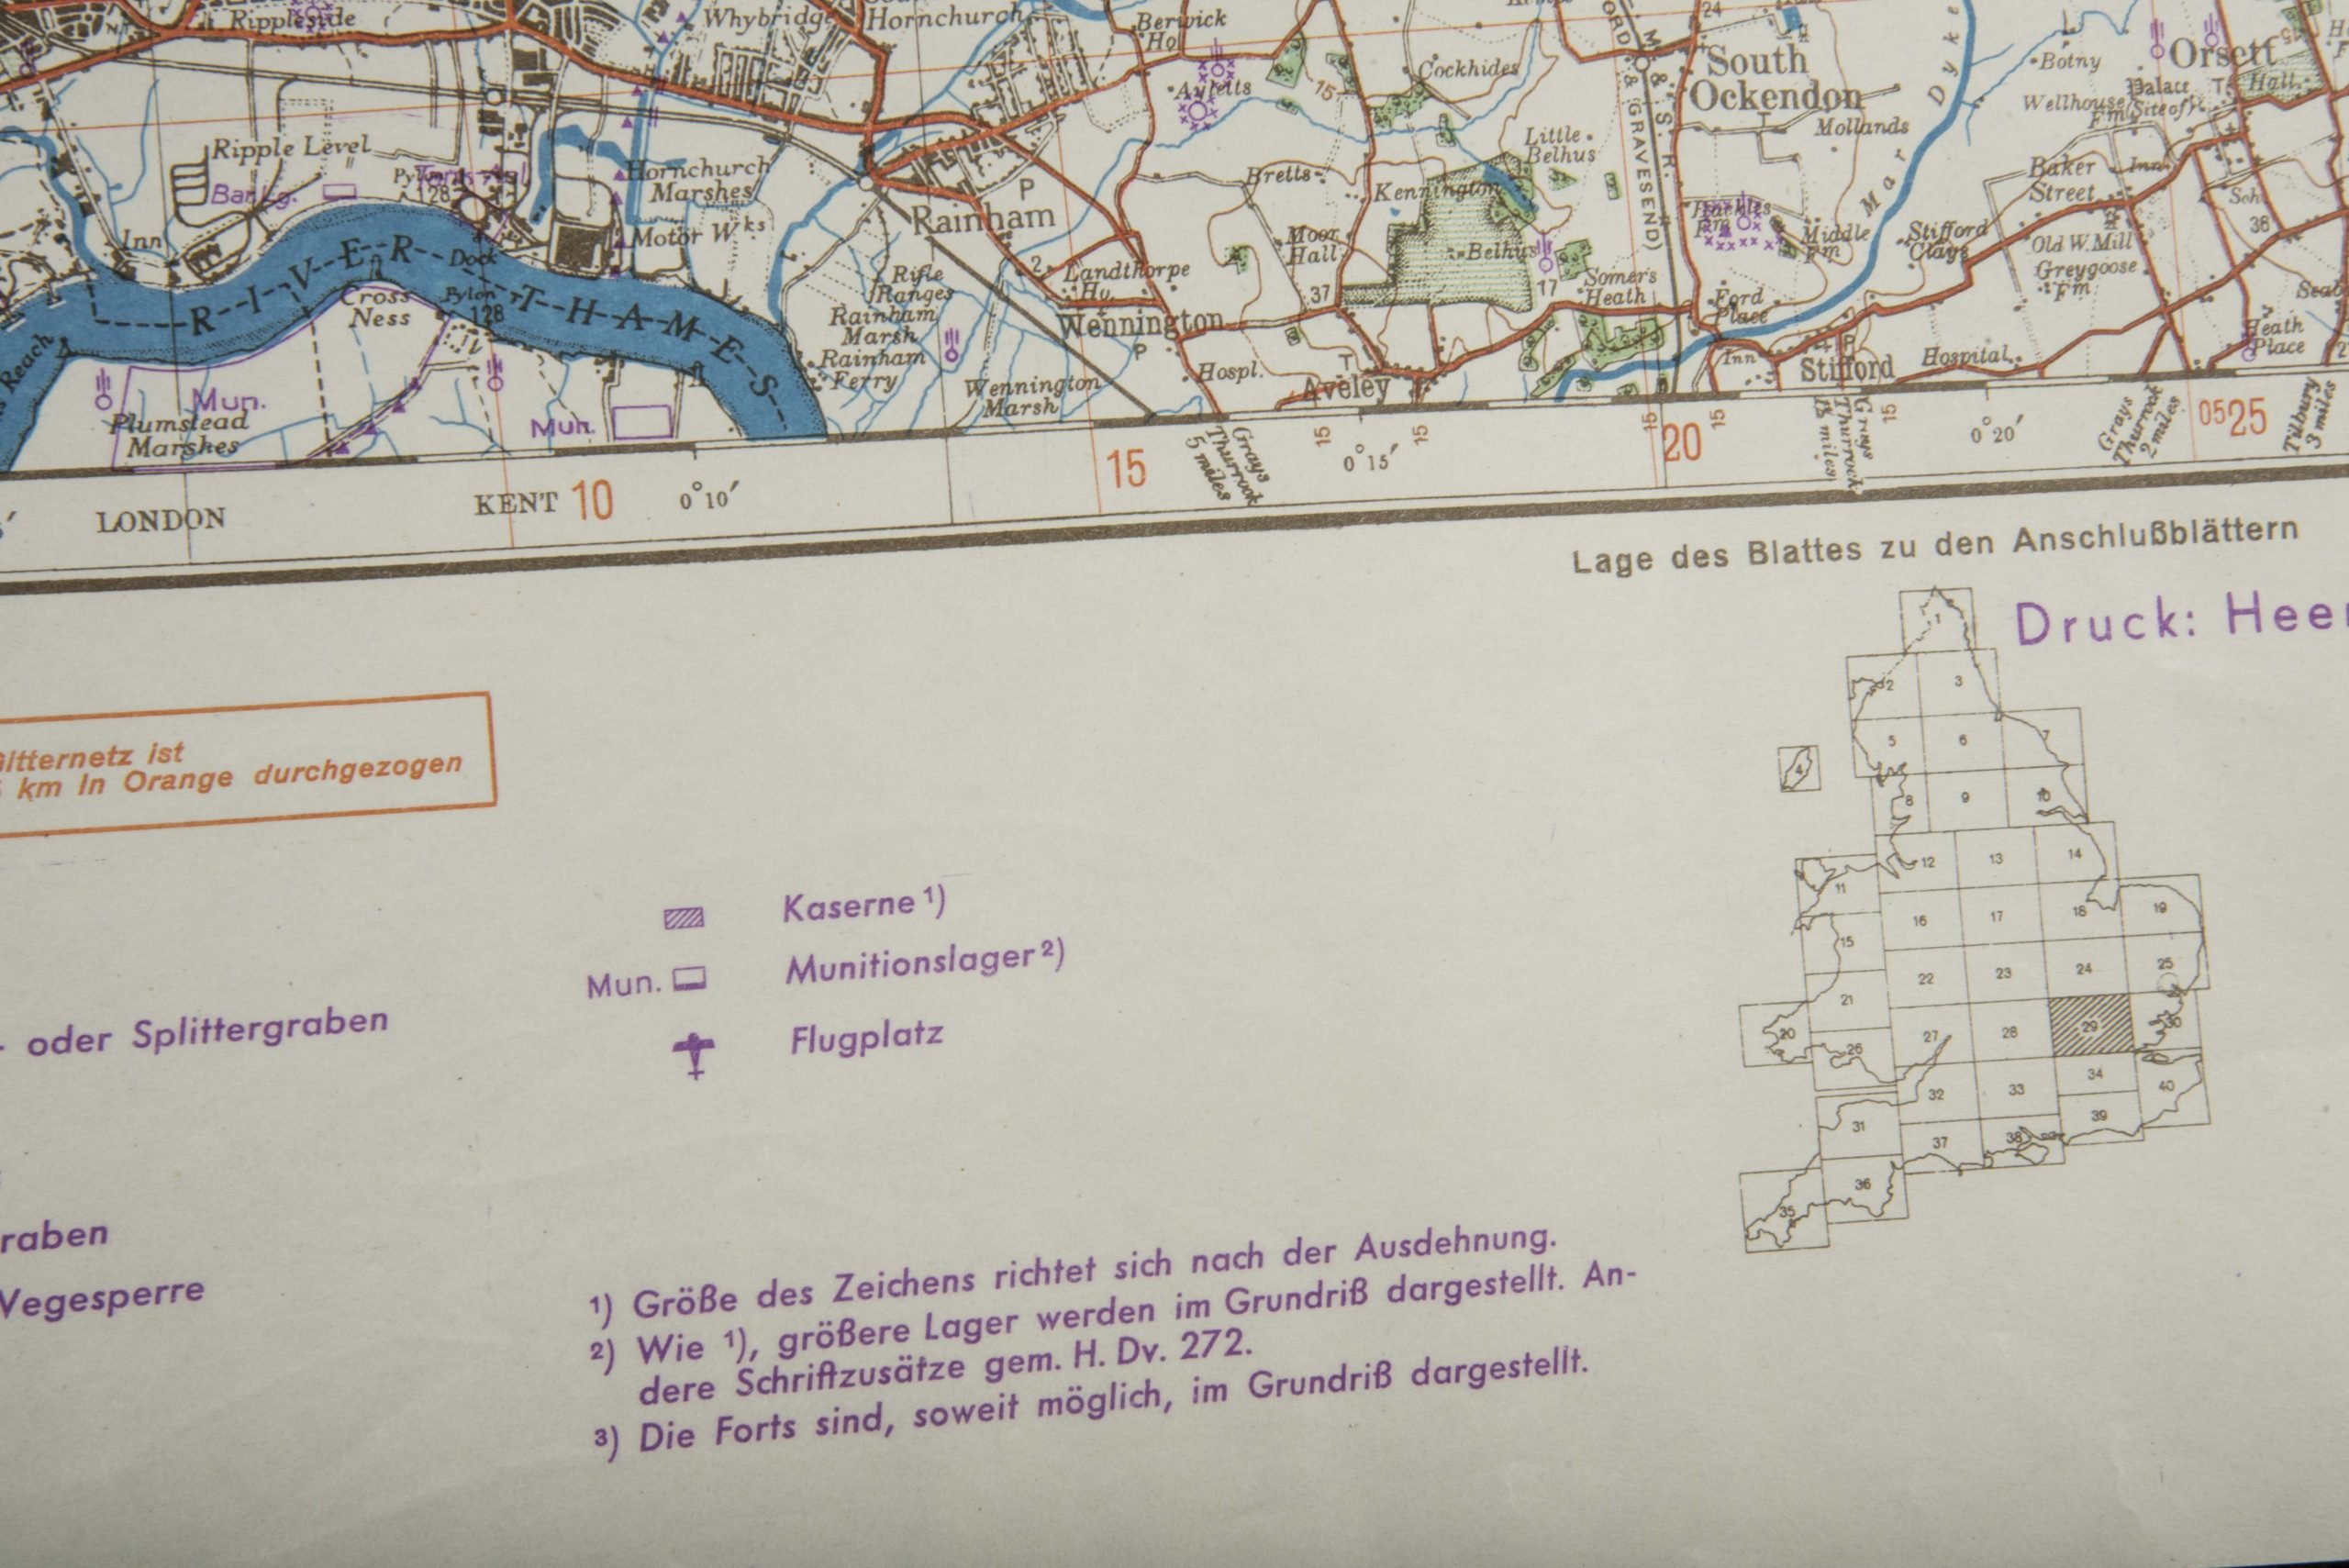 Rippleside
Whybridge
Hornchurch
Berwick
Ho.
Cockhides
24
South
Ockendon
Mollands
Mar Dyke
Botny
Orsett
Hall
Palace
(Site of)
Wellhouse
Fm
Ayletts
15
M. & S. R.
& GRAVESEND)
Ripple Level
Bankg.
128
Hornchurch
Marshes
Motor Wks
P
Rainham
Bretts
Kennington
Little
Belhus
Belhus
Moor
Hall
37
17
Somers
Heath
Ford
Place
Middle
Fm
Stifford
Clays
Baker
Street
Inn
Sch.
38
Old W. Mill
Greygoose
Fm
Heath
Place
Inn
RIVER THAMES
Dock
Cross
Ness
Pylon
128
Reach
Rifle
Ranges
Rainham
Marsh
Rainham
Ferry
2
Landthorpe
Ho.
Wennington
P
Wennington
Marsh
Hospl.
T
Aveley
Inn
P
Stifford
Hospital
Mun.
Plumstead
Marshes
Mun.
LONDON
KENT
10
0°10′
15
Grays
Thurrock
5 miles
15
0°15′
15
15
20
15
Grays
Thurrock
1½ miles
15
0°20′
Grays
Thurrock
2 miles
0525
Tilbury
3 miles
Lage des Blattes zu den Anschlußblättern
Druck: Heer
1
2
3
4
5
6
7
8
9
10
11
12
13
14
15
16
17
18
19
20
21
22
23
24
25
26
27
28
29
30
31
32
33
34
35
36
37
38
39
40
Gitternetz ist
km in Orange durchgezogen
- oder Splittergraben
raben
Wegesperre
Kaserne ¹)
Mun. Munitionslager ²)
Flugplatz
¹) Größe des Zeichens richtet sich nach der Ausdehnung.
²) Wie ¹), größere Lager werden im Grundriß dargestellt. An-
dere Schriftzusätze gem. H. Dv. 272.
³) Die Forts sind, soweit möglich, im Grundriß dargestellt.